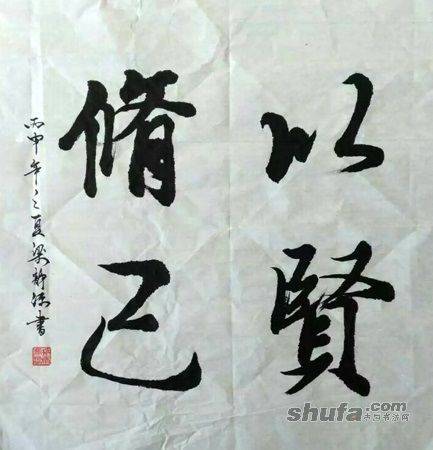 以賢
脩己
丙申年之夏梁書
shufa.com
书法网